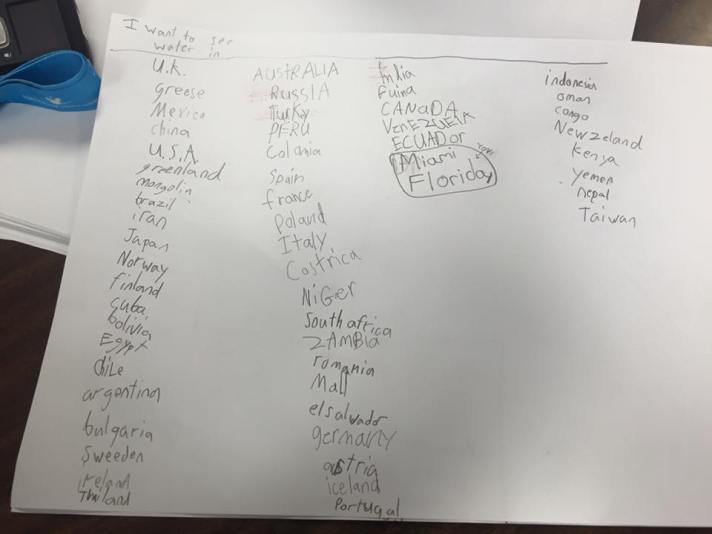 I want to see
water in
U.K.
Greese
Mexico
china
U.S.A
greenland
mongolin
brazil
iran
Japan
Norway
finland
Cuba
bolivia
Egypt
chile
argentina
bulgaria
Sweeden
ireland
Thailand
AUSTRALIA
RUSSIA
Turky
PERU
Colania
Spain
france
Poland
Italy
Costrica
NiGer
South africa
ZAMBIA
romania
Mali
el salvador
germany
austria
iceland
Portugal
India
Fuina
CANADA
VenEZUElA
ECUADor
Miami
Floriday
indonesia
oman
congo
Newzeland
Kenya
yemen
nepal
Taiwan